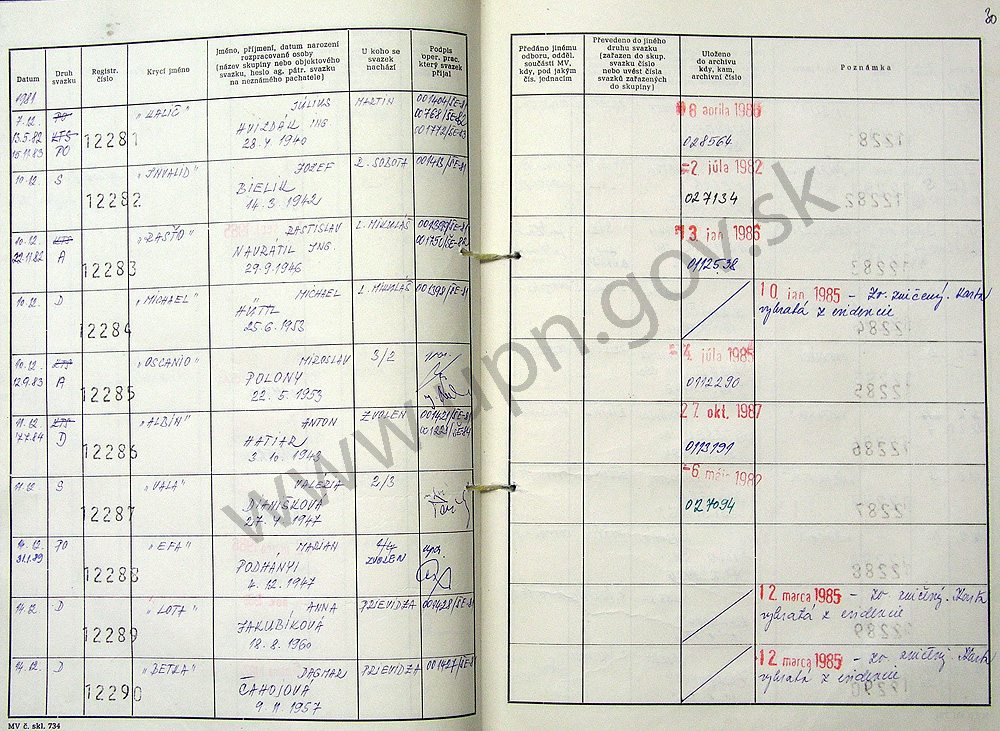 30
Datum
Druh svazku
Registr. číslo
Krycí jméno
Jméno, příjmení, datum narození rozpracované osoby (název skupiny nebo objektového svazku, heslo ag. pátr. svazku na neznámého pachatele)
U koho se svazek nachází
Podpis oper. prac. který svazek přijal
Předáno jinému odboru, odděl. součásti MV, kdy, pod jakým čís. jednacím
Převedeno do jiného druhu svazku (zařazen do skup. svazku číslo nebo uvést čísla svazků zařazených do skupiny)
Uloženo do archivu kdy, kam, archivní číslo
Poznámka
1981
7.12. PO 12281 "HALIČ" JÚLIUS MARTIN 001404/ŠE-81
13.5.82 KTS HVIZDÁK ING. 00768/ŠE-82
PO 28.4.1940 001772/ŠE-83
8 aprila 1986
028564
10.12. S 12282 "INVALID" JOZEF R. SOBOTA 001413/ŠE-81
BIELIK
14.3.1942
2. júla 1982
027134
10.12. KTS 12283 "RASŤO" RASTISLAV L. MIKULÁŠ
22.11.82 A NAVRÁTIL ING. 001750/ŠE-82
29.9.1946
13. jan. 1986
0112538
10.12. D 12284 "MICHAEL" MICHAEL L. MIKULÁŠ 001398/ŠE-81
25.6.1953
10. jan 1985 - Zv. zničený. Karta
vybratá z evidencie
10.12. KTS 12285 "OSCANIO" MIROSLAV 3/2
12.9.83 A POLONY
22.5.1953
4. júla 1985
0112290
11.12. KTS 12286 "ALBÍN" ANTON ZVOLEN 001421/ŠE-81
7.7.84 D HATIAR
3.10.1943
27. okt. 1987
0113191
11.12. S 12287 "VALA" VALÉRIA 2/3
DIANIŠKOVÁ
27.4.1947
6. mája 1982
027094
14.12. PO 12288 "EFA" MARIAN
31.1.89 PODHÁNYI ZVOLEN
4.12.1947
14.12. D 12289 "LOTA" ANNA PRIEVIDZA 001428/ŠE-81
JAKUBÍKOVÁ
18.8.1960
12. marca 1985 - Zv. zničený. Karta
vybratá z evidencie
14.12. D 12290 "BETKA" DAGMAR PRIEVIDZA 001427/ŠE-81
ČAHOJOVÁ
9.11.1957
12. marca 1985 - Zv. zničený. Karta
vybratá z evidencie
MV č. skl. 734
www.upn.gov.sk